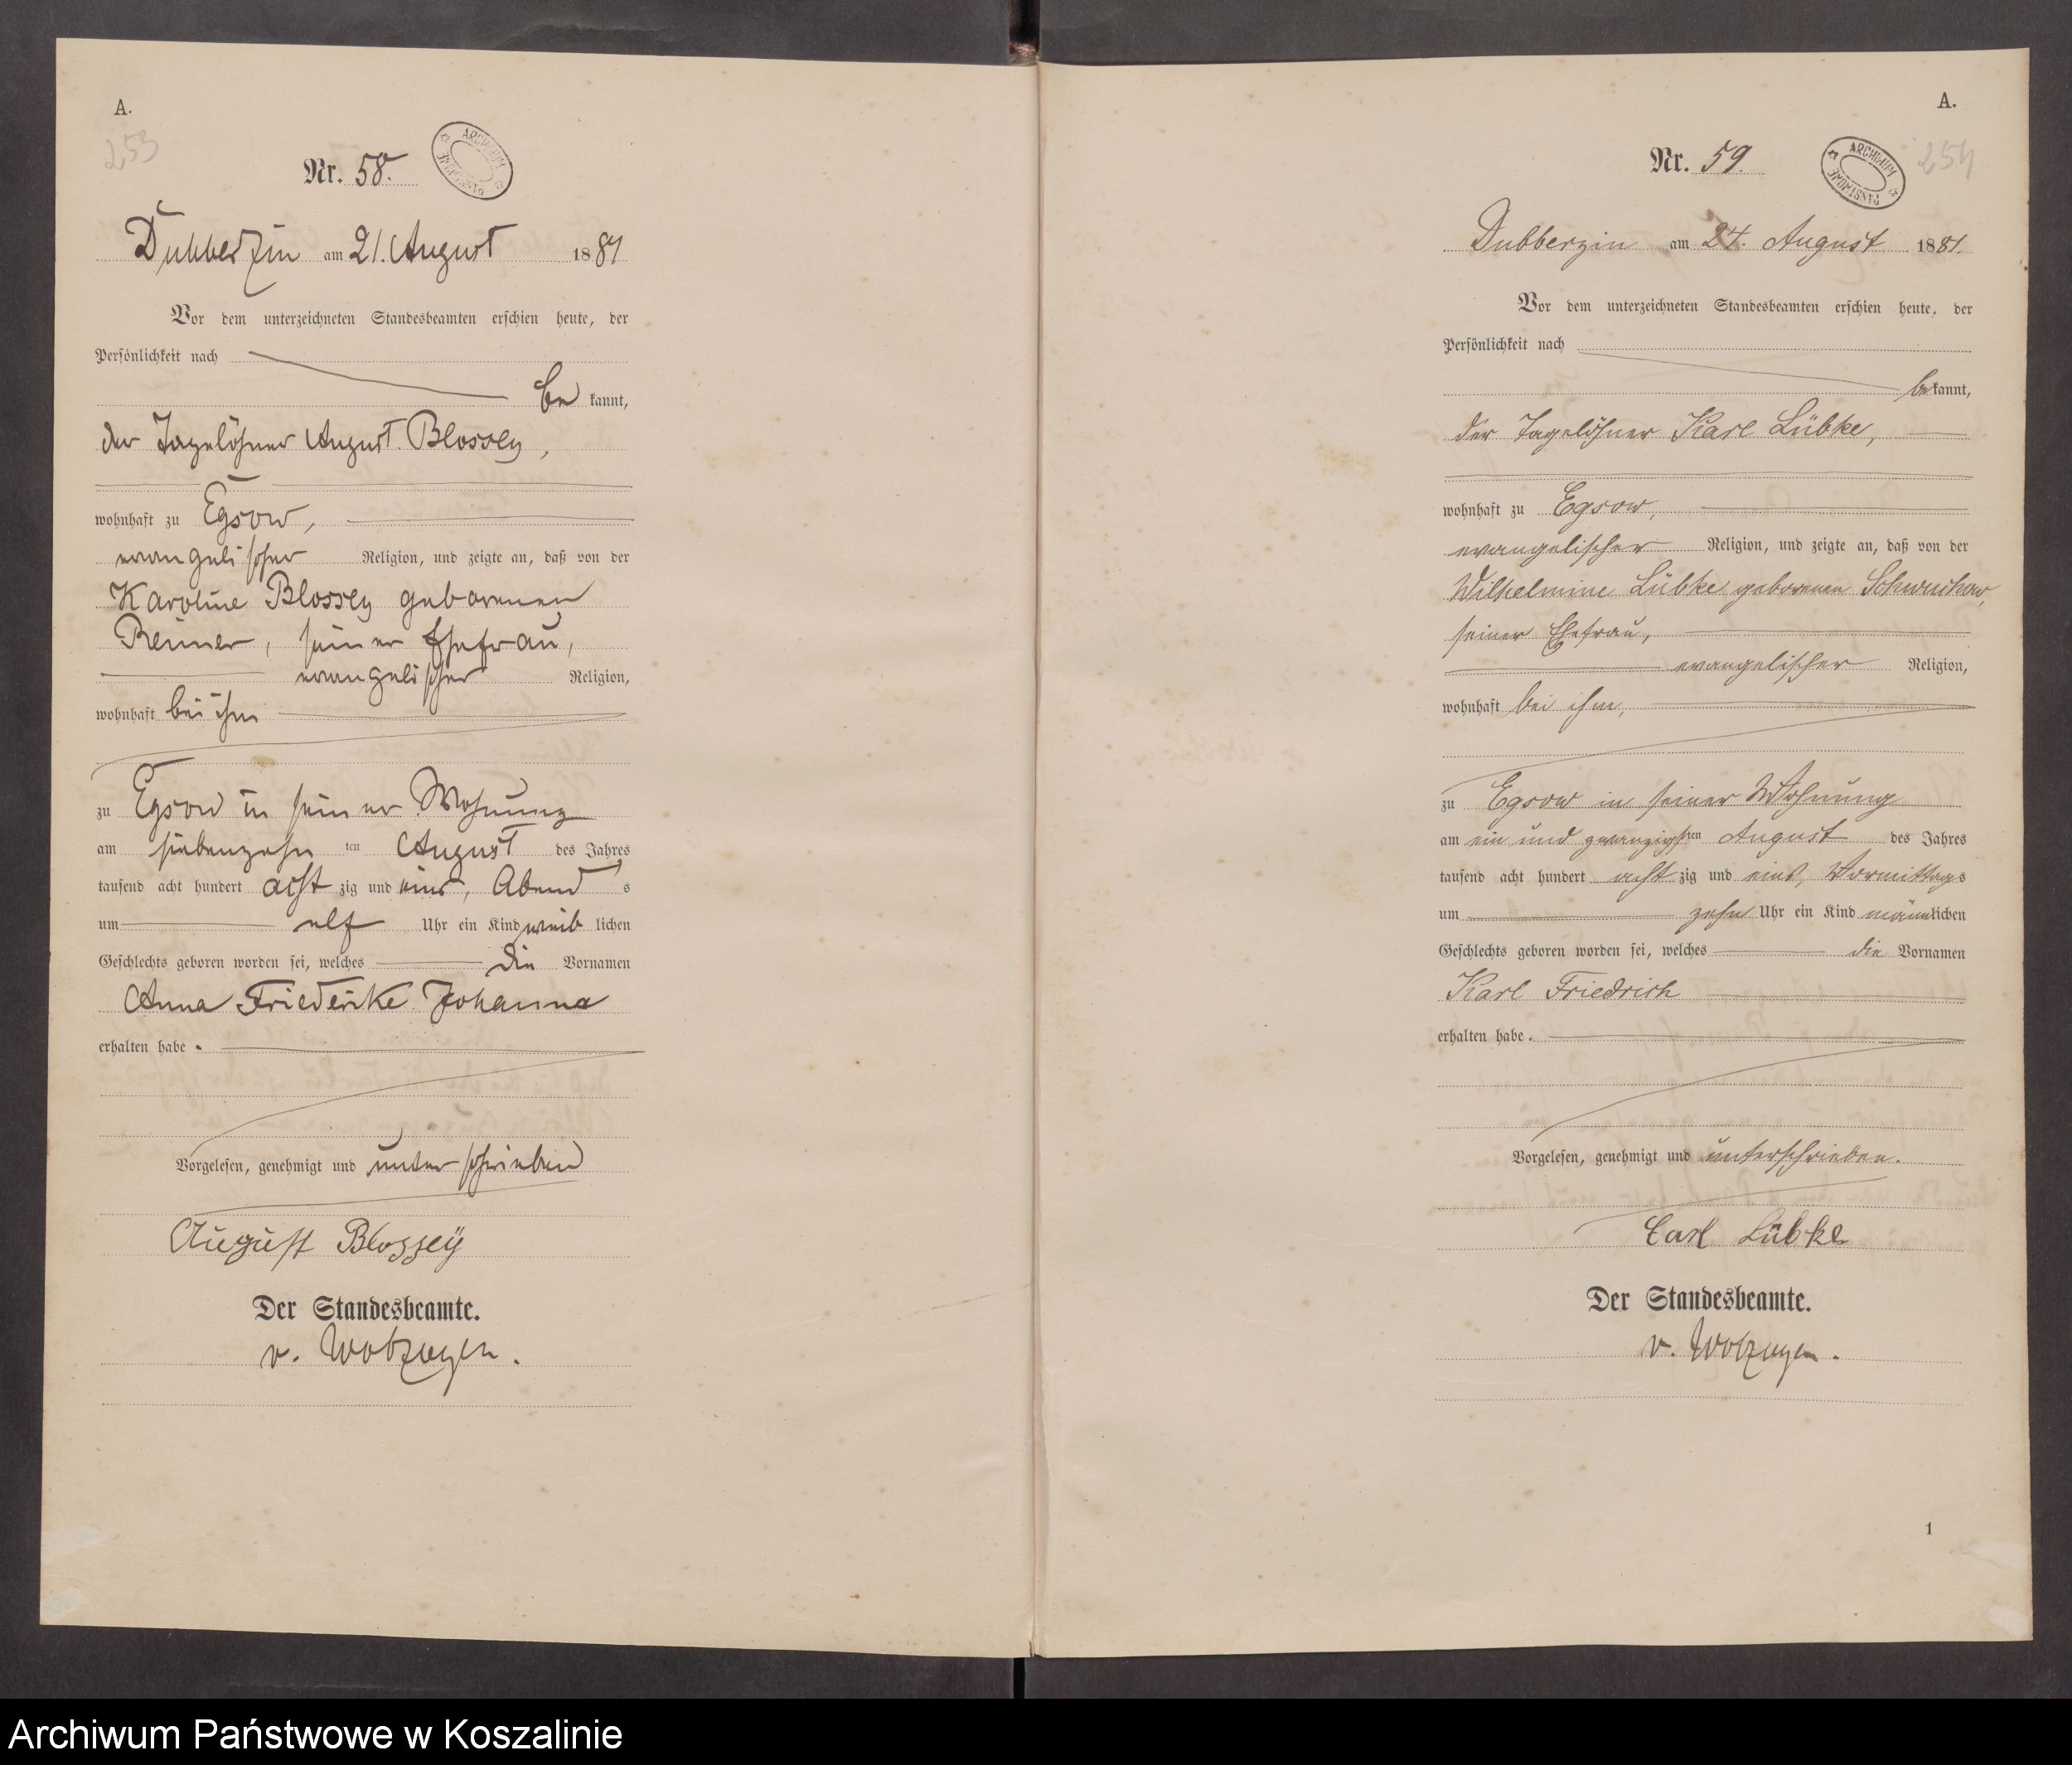 A.
253
Nr. 58.
ARCHIWUM PAŃSTWOWE
Dubberzin am 21. August 1881
Vor dem unterzeichneten Standesbeamten erschien heute, der
Persönlichkeit nach
be kannt,
der Tagelöhner August Blossey,
wohnhaft zu Egsow,
evangelischer Religion, und zeigte an, daß von der
Karoline Blossey geborenen
Reimer, seiner Ehefrau,
evangelischer Religion,
wohnhaft bei ihm
zu Egsow in seiner Wohnung
am siebenzehn ten August des Jahres
tausend acht hundert acht zig und eins, Abend s
um elf Uhr ein Kind weib lichen
Geschlechts geboren worden sei, welches die Vornamen
Anna Friederike Johanna
erhalten habe.
Vorgelesen, genehmigt und unterschrieben
August Blossey
Der Standesbeamte.
v. Wolzogen.
A.
254
Nr. 59.
ARCHIWUM PAŃSTWOWE
Dubberzin am 24. August 1881.
Vor dem unterzeichneten Standesbeamten erschien heute, der
Persönlichkeit nach
be kannt,
der Tagelöhner Karl Lübke,
wohnhaft zu Egsow,
evangelischer Religion, und zeigte an, daß von der
Wilhelmine Lübke geborenen
seiner Ehefrau,
evangelischer Religion,
wohnhaft bei ihm,
zu Egsow in seiner Wohnung
am ein und zwanzigsten August des Jahres
tausend acht hundert acht zig und eins, Vormittags
um zehn Uhr ein Kind männlichen
Geschlechts geboren worden sei, welches die Vornamen
Karl Friedrich
erhalten habe.
Vorgelesen, genehmigt und unterschrieben.
Carl Lübke
Der Standesbeamte.
v. Wolzogen.
1
Archiwum Państwowe w Koszalinie